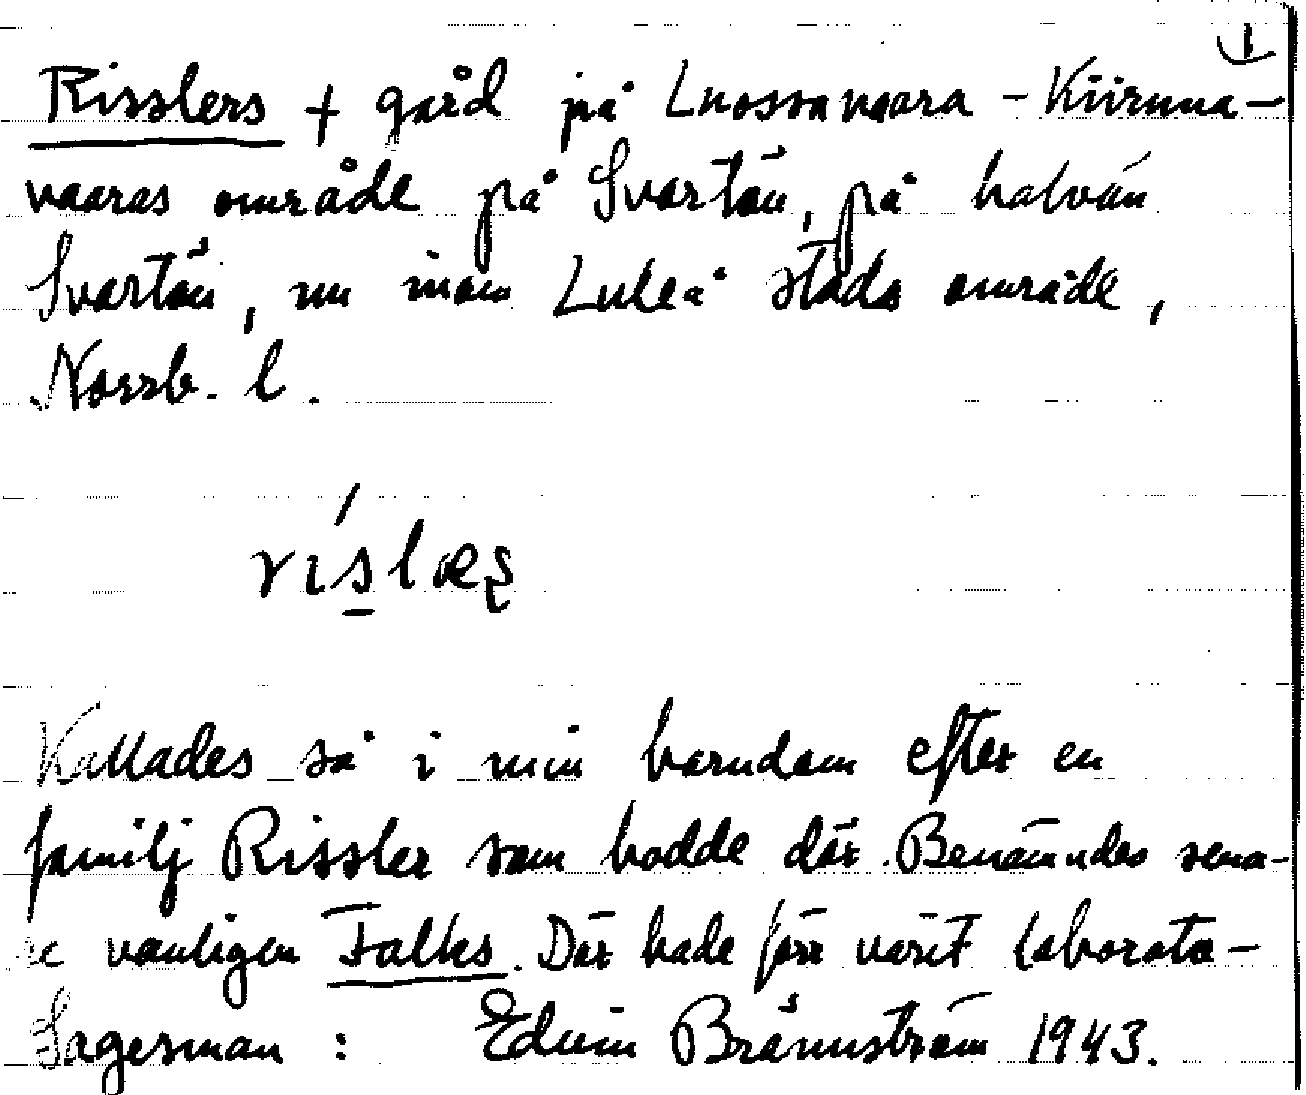 1
Risslers + gård på Luossavaara - Kiiruna-
vaaras område på Svartön, på halvön
Svartön, nu inom Luleå stads område,
Norrb. l.
ríslæs
Kallades så i min barndom efter en
familj Rissler som bodde där. Benämndes sena-
re vanligen Falks. Där hade förr varit laborato-
Sagesman : Edvin Brännström 1943.